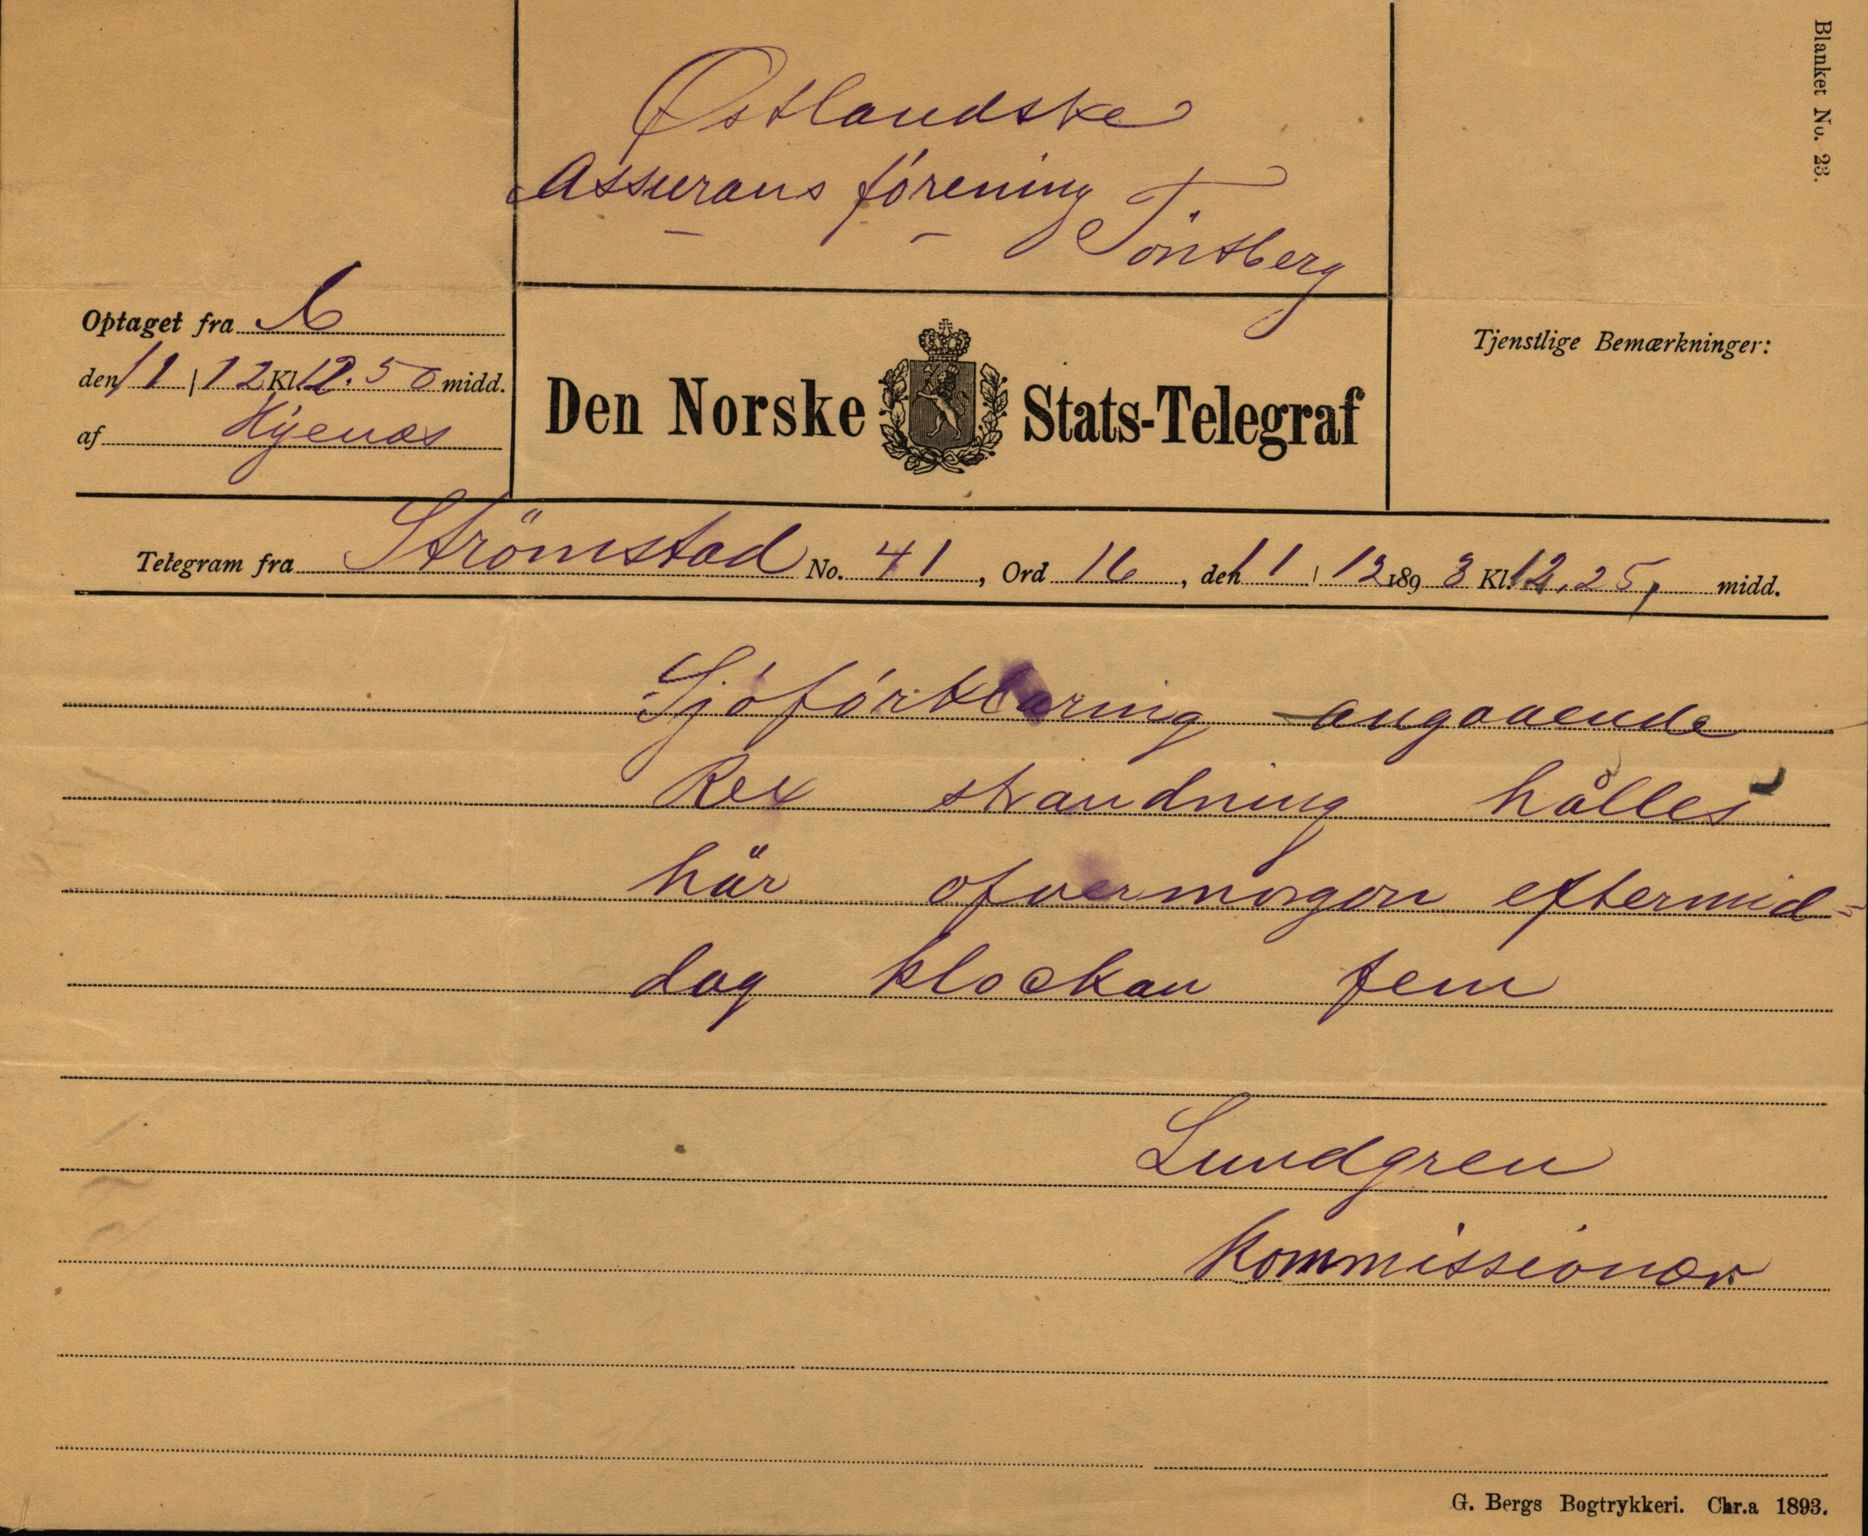 Blanket No. 23.
Østlandske
Assurans förening
Tönsberg
Optaget fra
den 11 | 12 Kl. 12.50 midd.
af Hyenæs
Den Norske Stats-Telegraf
Tjenstlige Bemærkninger:
Telegram fra Strömstad No. 41, Ord 16, den 11 | 12 1893 Kl. 12.25, midd.
Sjöförklaring angaaende
Rex strandning hålles
här ofvermorgon eftermid-
dag klockan fem
Lundgren
Kommissionær
G. Bergs Bogtrykkeri. Chr.a 1893.